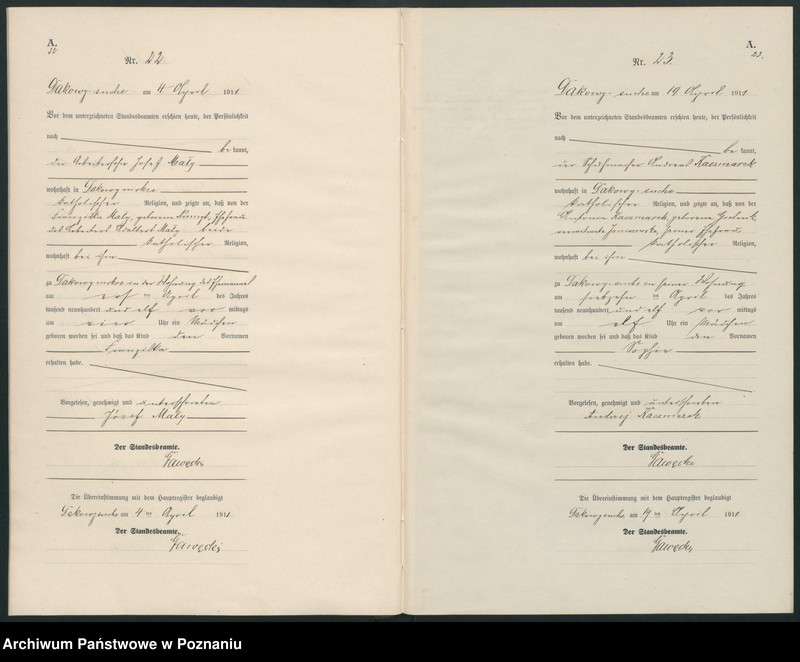 A.
Nr. 22.
Dakowy suche am 4 April 1911
Vor dem unterzeichneten Standesbeamten erschien heute, der Persönlichkeit
nach
be kannt,
der Josef Mały
wohnhaft in Dakowy mokre
katholischer Religion, und zeigte an, daß von der
Franziska Mały, geborenen Ehefrau
des Arbeiters Adalbert Mały beide
katholischer Religion,
wohnhaft bei ihm
zu Dakowy mokre in der Wohnung des Ehemannes
am April des Jahres
tausend neunhundert und elf vor mittags
um vier Uhr ein Mädchen
geboren worden sei und daß das Kind den Vornamen
Franziska
erhalten habe.
Vorgelesen, genehmigt und unterschrieben
Józef Mały
Der Standesbeamte.
Gawęcki
Die Übereinstimmung mit dem Hauptregister beglaubigt
Dakowy suche am 4 ten April 1911
Der Standesbeamte.
Gawęcki
A.
23.
Nr. 23.
Dakowy suche am 19 April 1911
Vor dem unterzeichneten Standesbeamten erschien heute, der Persönlichkeit
nach
be kannt,
der Schuhmacher Andreas Kaczmarek
wohnhaft in Dakowy suche
katholischer Religion, und zeigte an, daß von der
Kaczmarek, geborene
seiner Ehefrau
katholischer Religion,
wohnhaft bei ihm
zu Dakowy suche in seiner Wohnung
am siebzehn ten April des Jahres
tausend neunhundert und elf vor mittags
um elf Uhr ein Mädchen
geboren worden sei und daß das Kind den Vornamen
Sophie
erhalten habe.
Vorgelesen, genehmigt und unterschrieben
Andrzej Kaczmarek
Der Standesbeamte.
Gawęcki
Die Übereinstimmung mit dem Hauptregister beglaubigt
Dakowy suche am 19 ten April 1911
Der Standesbeamte.
Gawęcki
Archiwum Państwowe w Poznaniu